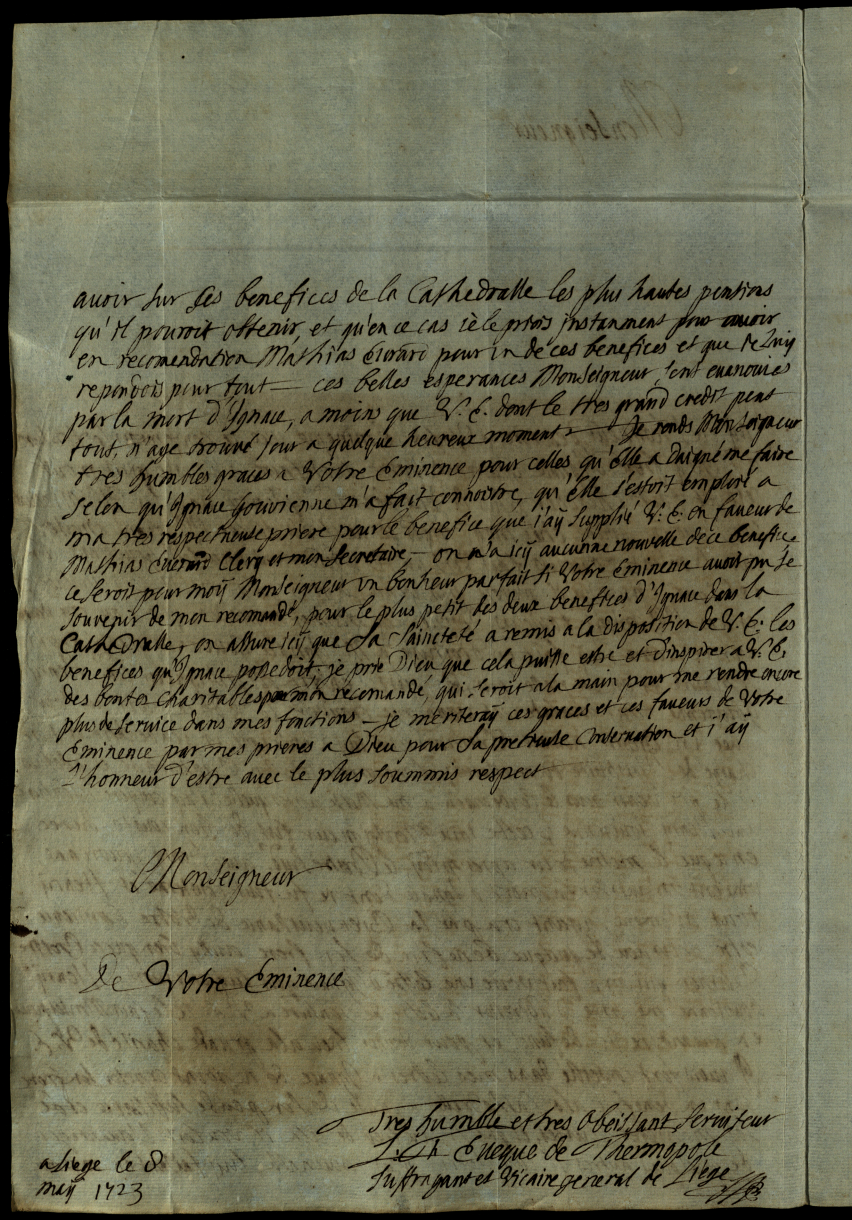 avoir sur ses benefices de la Cathedralle les plus hautes pentions
qu'il pouroit obtenir, et qu'en ce cas ie le priois instanment pour auoir
en recomendation Mathias Everard pour un de ces benefices et que je luij
repondois pour tout — ces belles esperances Monseigneur, sont evanouies
par la mort d'Ignace, a moins que V. E. dont le tres grand credit peut
tout, n'aye trouvé jour a quelque heureux moment — Je rends Monseigneur
tres humbles graces a Votre Eminence pour celles qu'Elle a daigné me faire
selon qu'Ignace Gouvienne m'a fait connoistre, qu'Elle s'estoit emploié a
ma tres respectueuse priere pour le benefice que j'aij supplié V. E. en faveur de
Mathias Everard Clerq et mon Secretaire, — on n'a icij aucunne nouvelle de ce benefice
ce seroit pour moij Monseigneur un bonheur parfait si Votre Eminence avoit pu se
souvenir de mon recomandé, pour le plus petit des deux benefices d'Ignace dans la
Cathedralle, on assure icij que Sa Saincteté a remis a la disposition de V. E. les
benefices qu'Ignace possedoit, je prie Dieu que cela puisse estre et d'inspirer a V. E.
des bontes charitables pour mon recomandé, qui seroit a la main pour me rendre encore
plus de service dans mes fonctions — je meriteraij ces graces et ces faveurs de Votre
Eminence par mes prieres a Dieu pour Sa pretieuse Conservation et j'aij
l'honneur d'estre avec le plus soummis respect
Monseigneur
De Votre Eminence
Tres humble et tres Obeissant serviteur
Eveque de Thermopole
Suffragant et Vicaire general de Liege
a Liege le 8
maij 1723